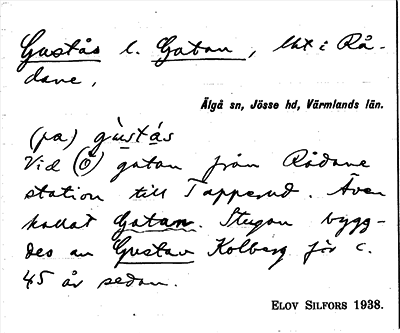 Gustås l. Gatan, lht i Rå-
dane,
Älgå sn, Jösse hd, Värmlands län.
(pa) gùstås
Vid (ö) gatan från Rådane
station till Tapperud. Även
kallat Gatan. Stugan bygg-
des av Gustav Kolberg för c.
45 år sedan.
ELOV SILFORS 1938.